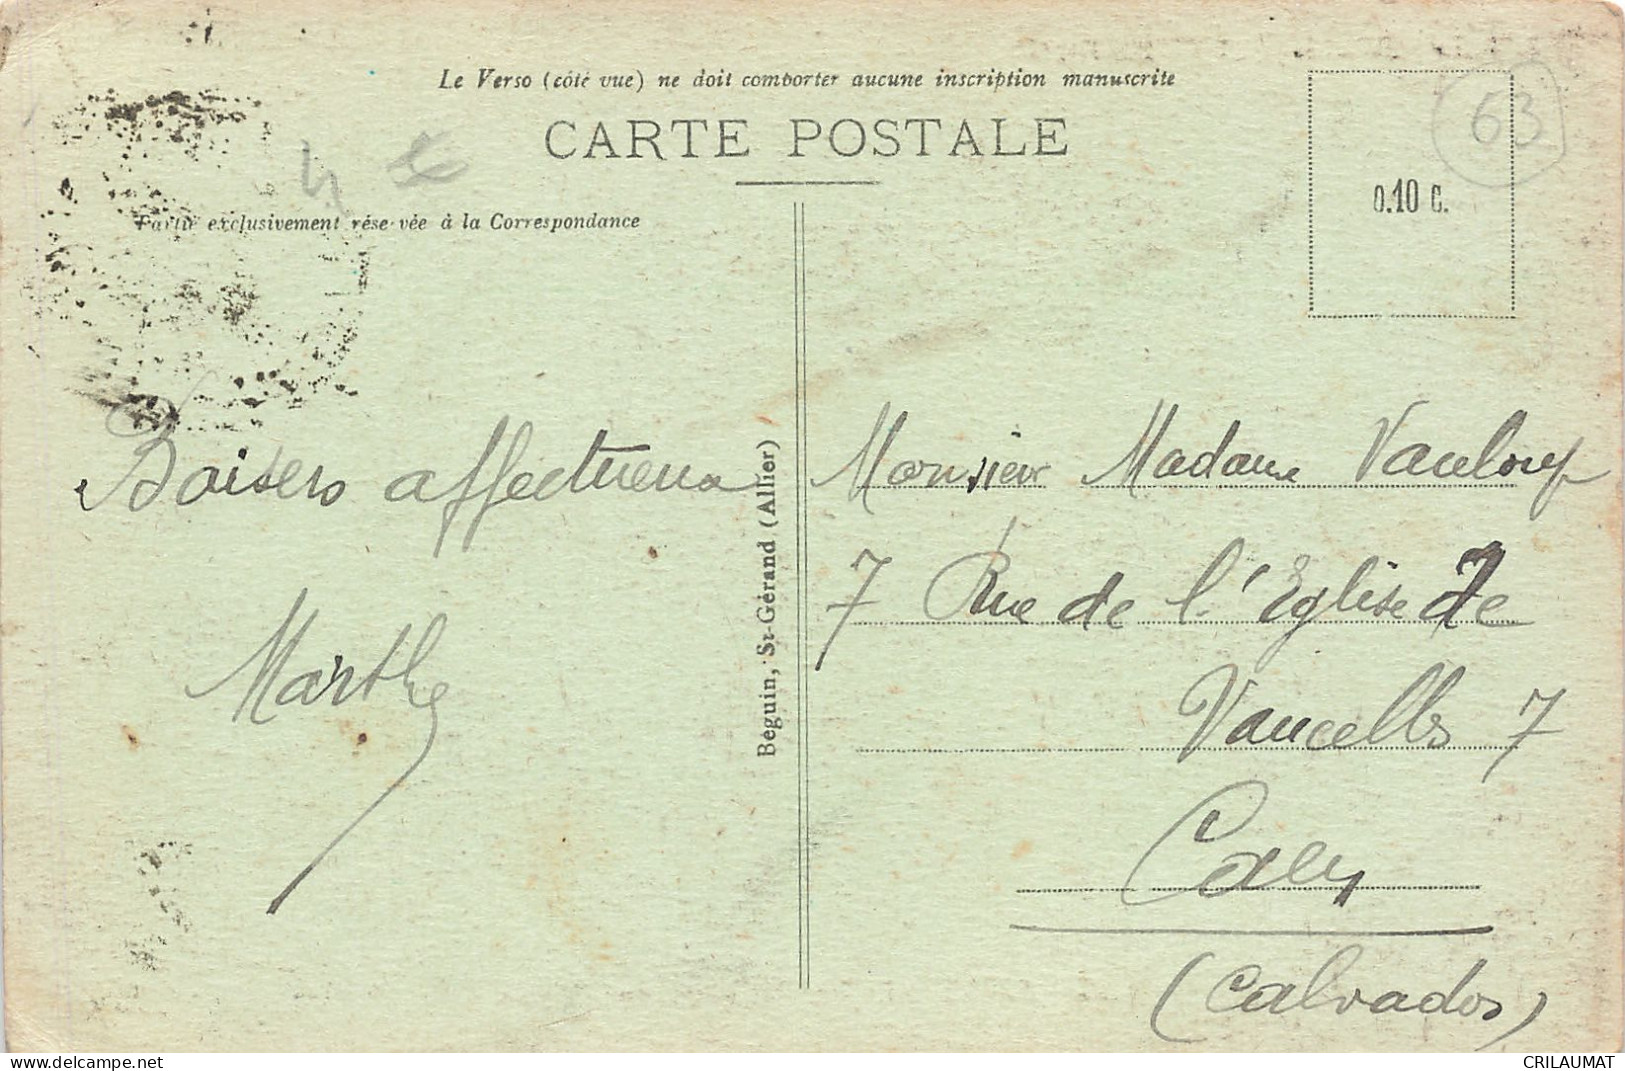 Le Verso (côté vue) ne doit comporter aucune inscription manuscrite
CARTE POSTALE
63
0.10 C.
Partie exclusivement réservée à la Correspondance
Baisers affectueux
Marthe
Béguin, St-Gérand (Allier)
Monsieur Madame
7 Rue de l'Eglise de
Vaucelles 7
Caen
(Calvados)
CRILAUMAT